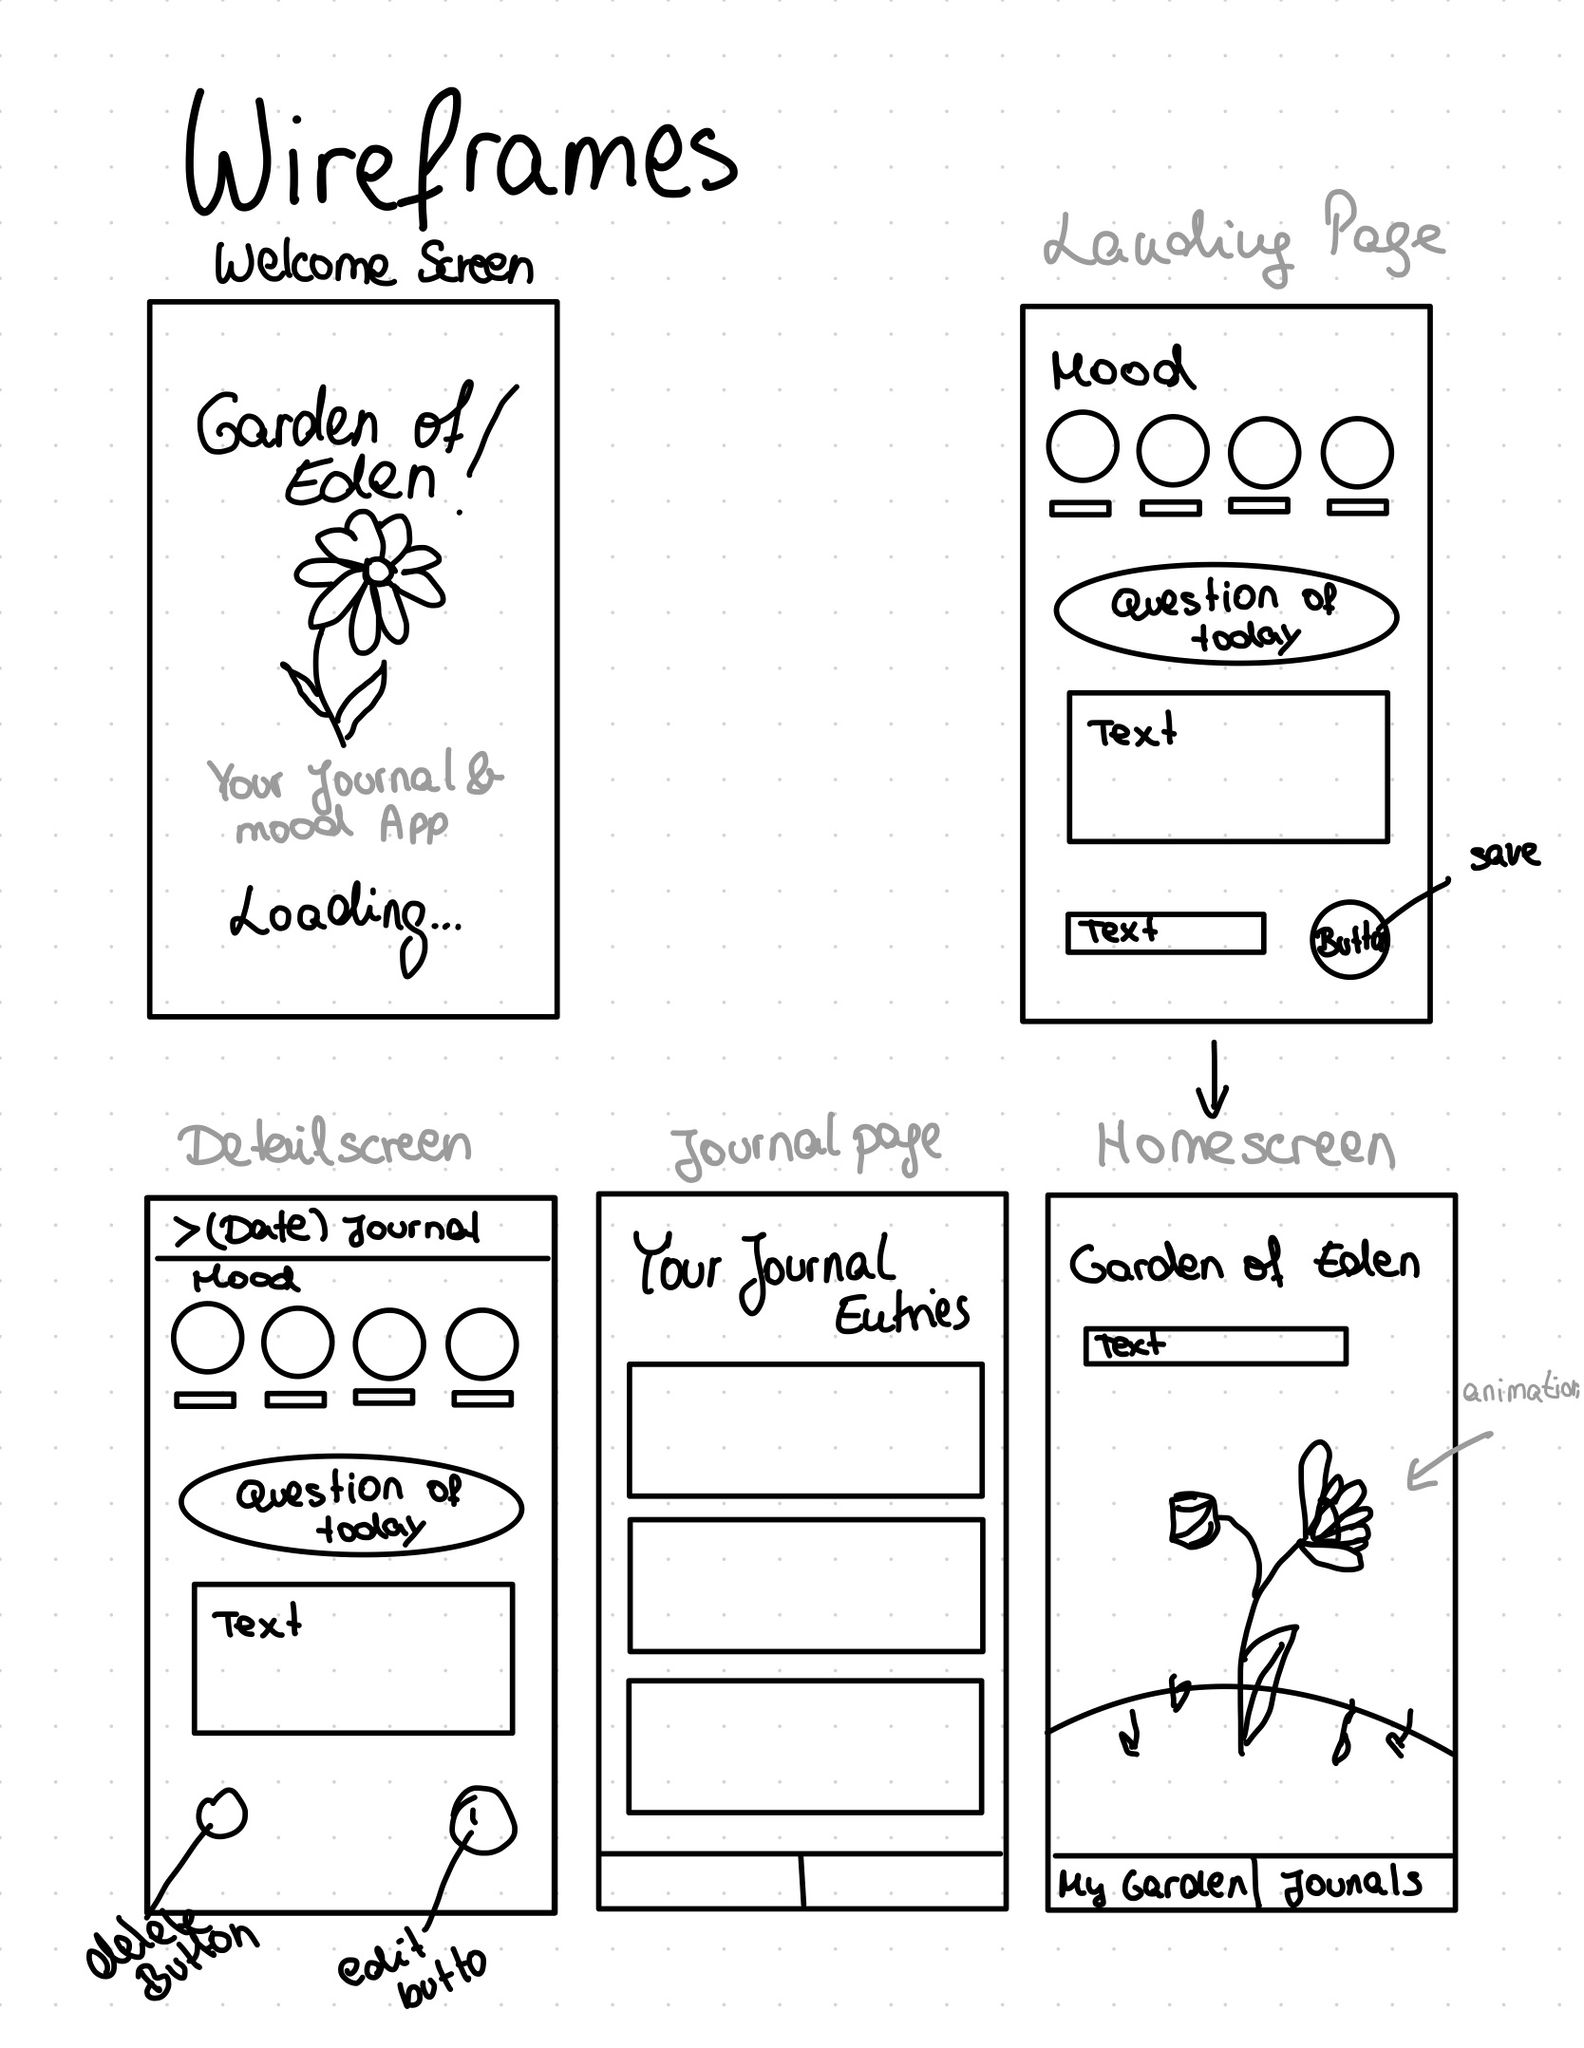 Wireframes
Welcome Screen
Garden of
Eden
Your Journal &
mood App
Loading...
Landing Page
Mood
Question of
today
Text
save
Text
Butto
Detailscreen
>(Date) Journal
Mood
Question of
today
Text
delete
Button
edit
butto
Journal page
Your Journal
Entries
Homescreen
Garden of Eden
Text
animation
My Garden
Jounals